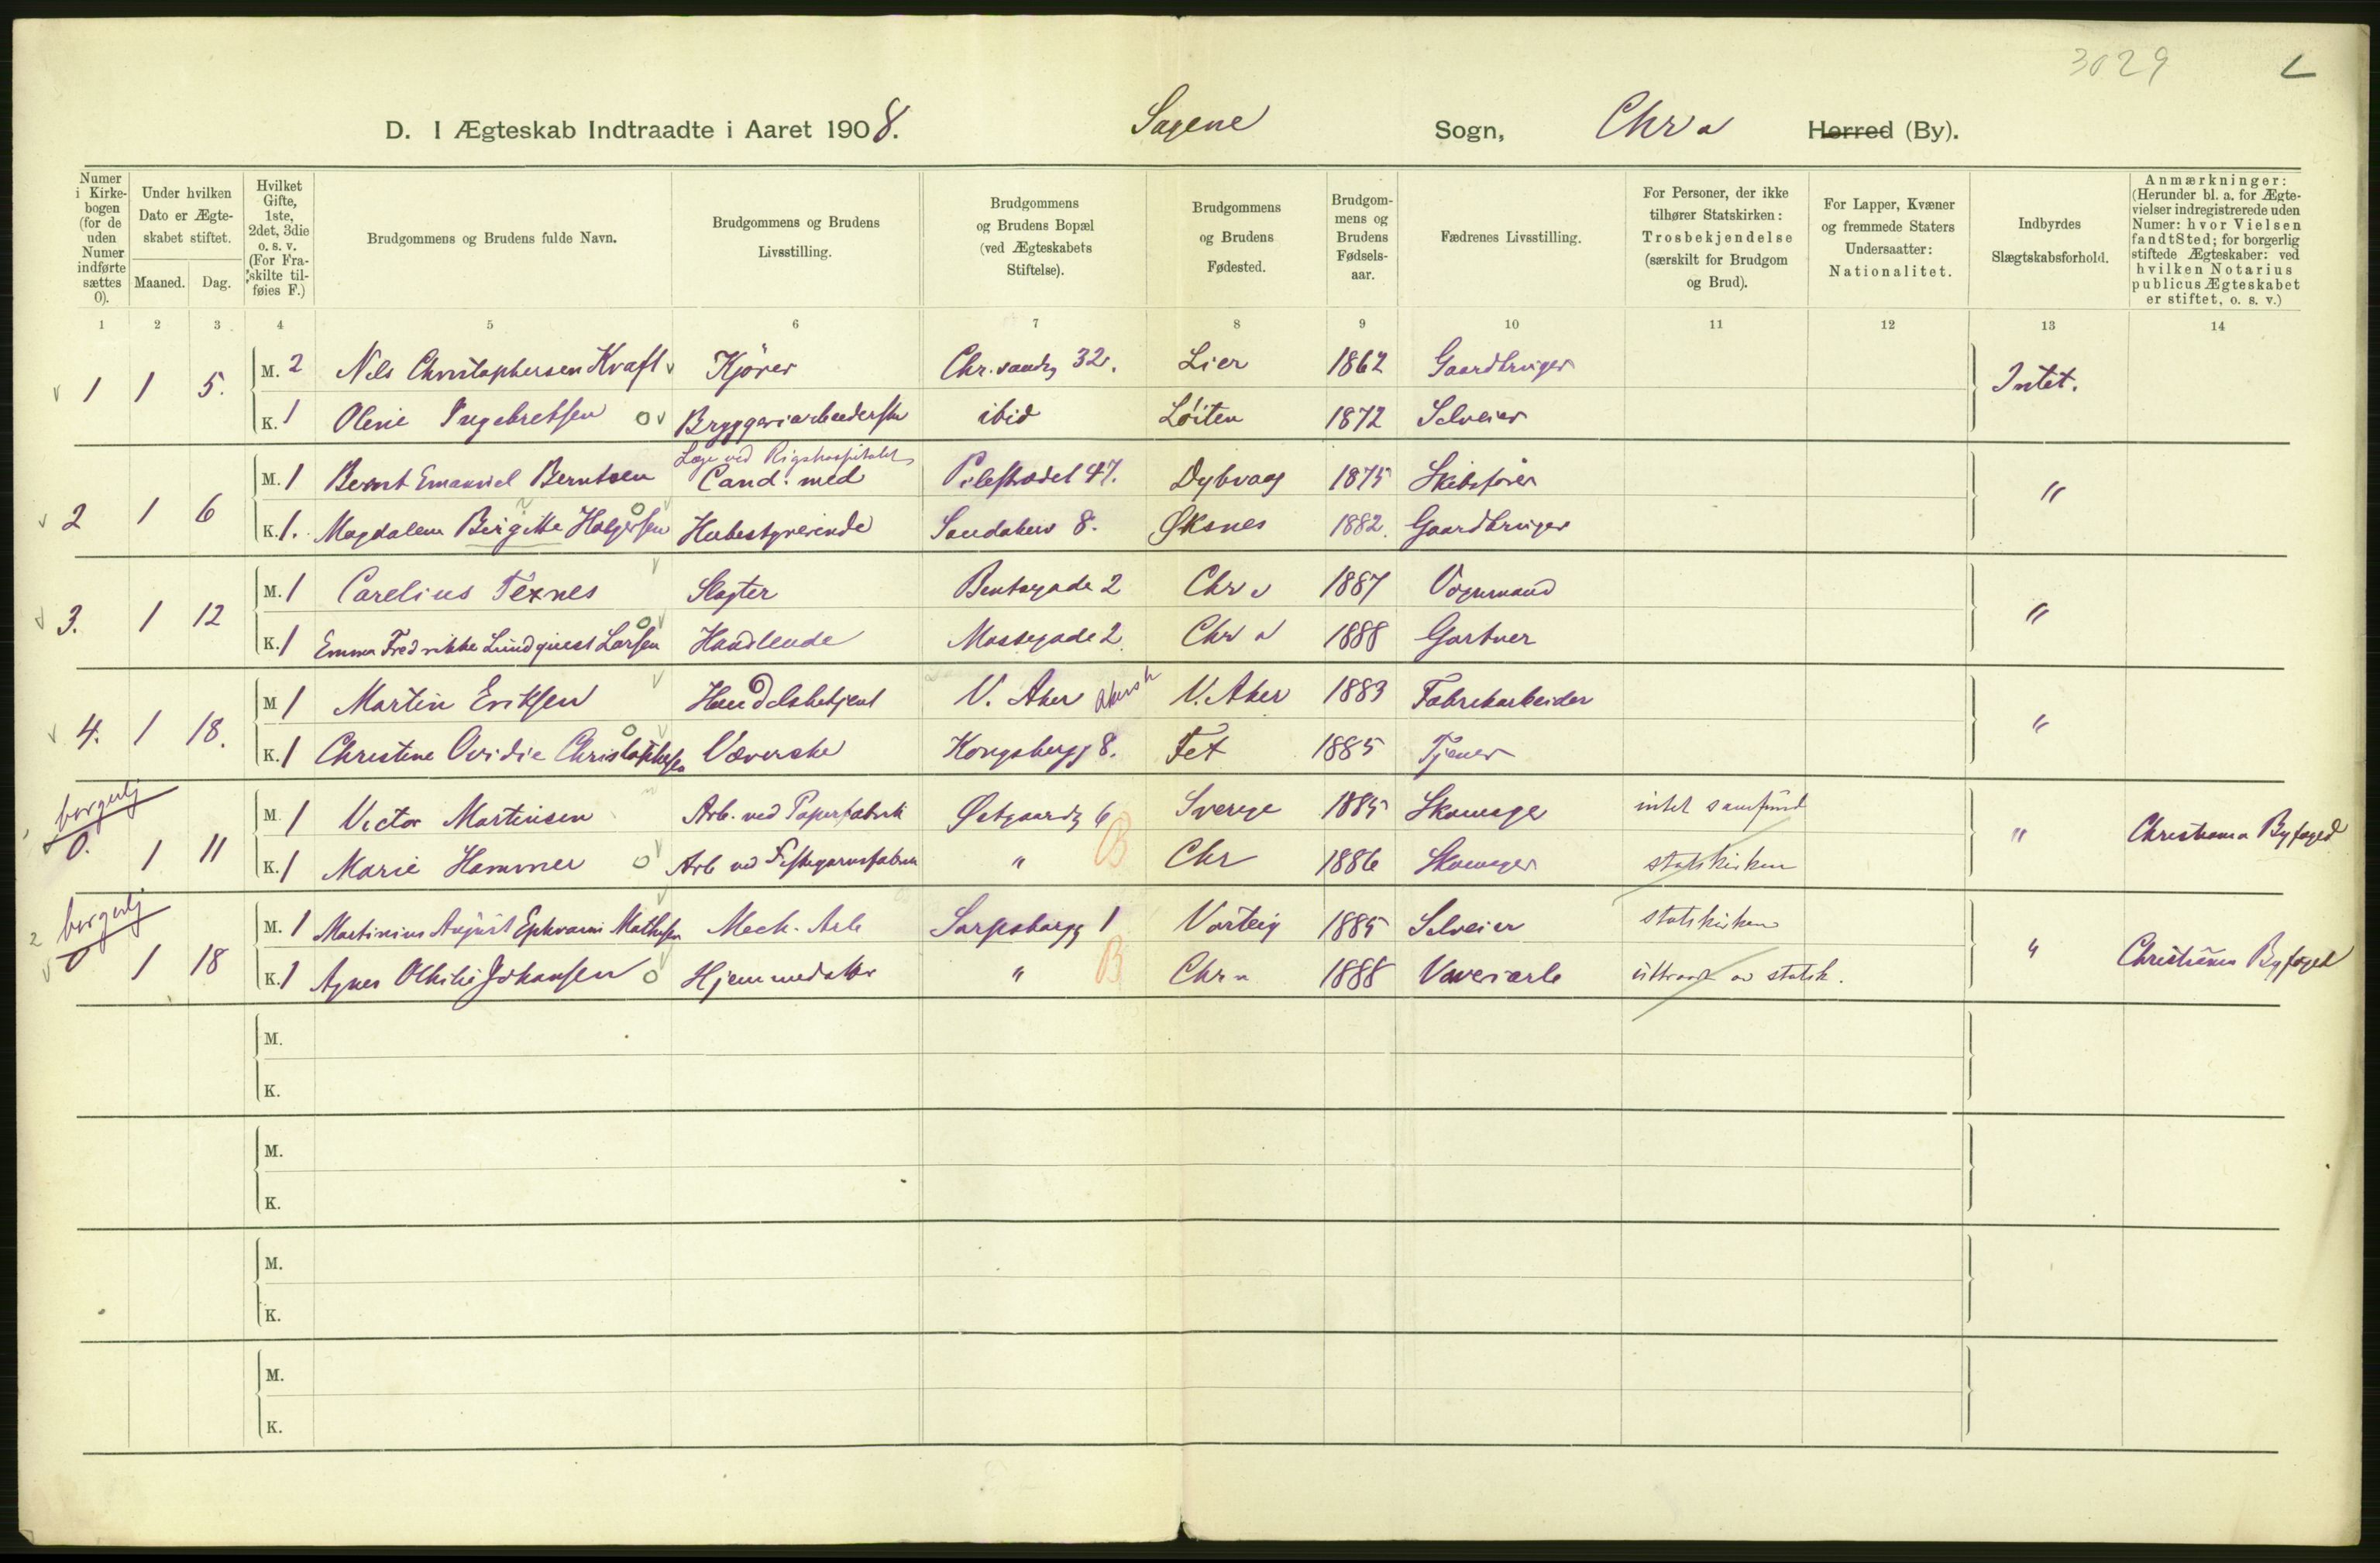 3029
D. I Ægteskab Indtraadte i Aaret 1908. Sagene Sogn, Chra Herred (By).
Numer i Kirkebogen (for de uden Numer indførte sættes 0).
Under hvilken Dato er Ægteskabet stiftet.
Maaned. Dag.
Hvilket Gifte, 1ste, 2det, 3die o. s. v. (For Fraskilte tilføies F.)
Brudgommens og Brudens fulde Navn.
Brudgommens og Brudens Livsstilling.
Brudgommens og Brudens Bopæl (ved Ægteskabets Stiftelse).
Brudgommens og Brudens Fødested.
Brudgommens og Brudens Fødselsaar.
Fædrenes Livsstilling.
For Personer, der ikke tilhører Statskirken: Trosbekjendelse (særskilt for Brudgom og Brud).
For Lapper, Kvæner og fremmede Staters Undersaatter: Nationalitet.
Indbyrdes Slægtskabsforhold.
Anmærkninger: (Herunder bl. a. for Ægtevielser indregistrerede uden Numer: hvor Vielsen fandt Sted; for borgerlig stiftede Ægteskaber: ved hvilken Notarius publicus Ægteskabet er stiftet, o. s. v.)
1 2 3 4 5 6 7 8 9 10 11 12 13 14
1 1 5. M. 2 Nils Christophersen Kraft Kjører Chr.sandsg 32. Lier 1862 Gaardbruger Intet.
K. 1 Olene Ingebretsen Bryggeriarbeiderske ibid Løiten 1872 Selveier
Læge ved Rigshospitalet
2 1 6 M. 1 Bernt Emanuel Berntsen Cand. med Pilestrædet 47. Dybvaag 1875 Skibsfører "
K. 1. Magdalena Birgitte Holgersen Husbestyrerinde Sandakerv 8. Øksnes 1882. Gaardbruger
3. 1 12 M. 1 Carelius Texnes Slagter Bentsegade 2 Chra 1887 Vognmand "
K. 1 Emma Fredrikke Lundquist Larsen Handlende Mossegade 2. Chra 1888 Gartner
4. 1 18. M 1 Martin Eriksen Handelsbetjent V. Aker Akersh V. Aker 1883 Fabrikarbeider "
K. 1 Christine Ovidie Christophersen Væverske Kongsbergg 8. Fet 1885 Tjener
borgerlj
0. 1 11 M. 1 Victor Martinsen Arb. ved Papirfabrik Østgaardsg 6 Sverige 1885 Skomager intet samfund " Christiania Byfoged
K. 1 Marie Hammer Arb ved Fiskegarnsfabrik " B Chr 1886 Skomager statskirken
borgerlj
0 1 18 M. 1 Martinius August Ephraim Mathisen Mech. Arb Sarpsborgg 1 Varteig 1885 Selveier statskirken " Christiania Byfoged
K. 1 Agnes Othilie Johansen Hjemmedatter " B Chra 1888 Væveriarb udtraadt av statsk.
M.
K.
M.
K.
M.
K.
M.
K.